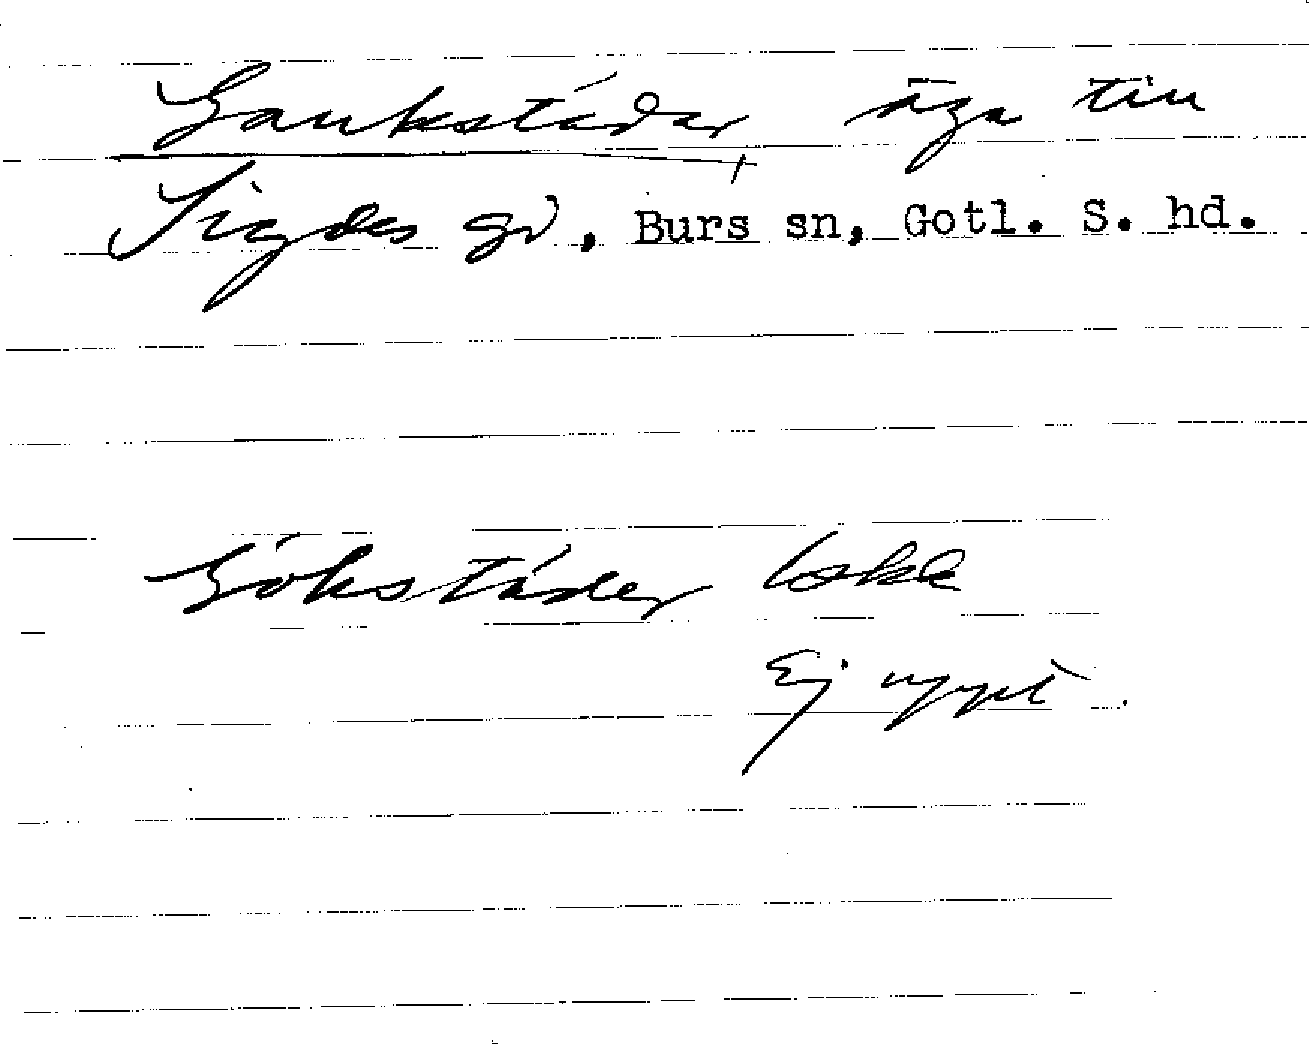 Gaukstädar äga till
Sigdes gd, Burs sn, Gotl. S. hd.
Gökstäder lskk
Ej uppt.